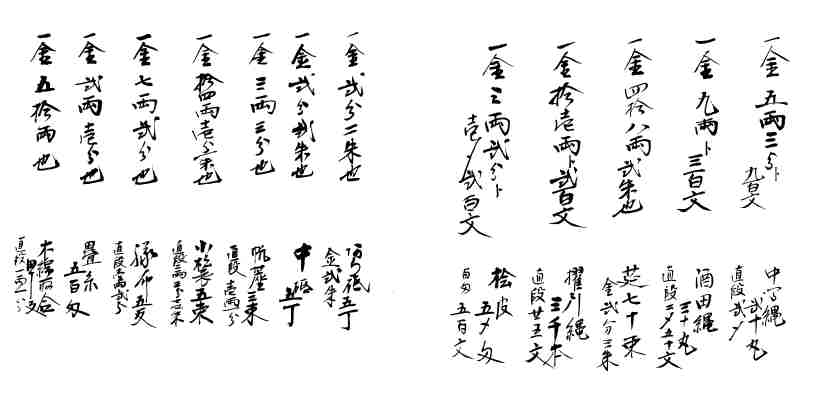 一金 五両三分ト
九百文
中字縄
弐十丸
直段弐〆
一金 九両ト
三百文
酒田縄
三十丸
直段二〆五十文
一金 四拾八両弐朱也
莚七十束
金弐分三朱
一金 拾壱両ト弐百文
擢引縄
三千本
直段廿五文
一金 三両弐分ト
壱〆弐百文
桧皮
五〆匁
百匁
五百文
一金 弐分一朱也
砥五丁
金弐朱
一金 弐分弐朱也
中砥
五丁
一金 三両三分也
三束
直段 壱両一分
一金 拾四両壱分一朱也
五束
直段
一金 七両弐分也
布五反
直段壱両弐分
一金 弐両壱分也
畳糸
五百匁
一金 五拾両也
木綿
直段一両一分